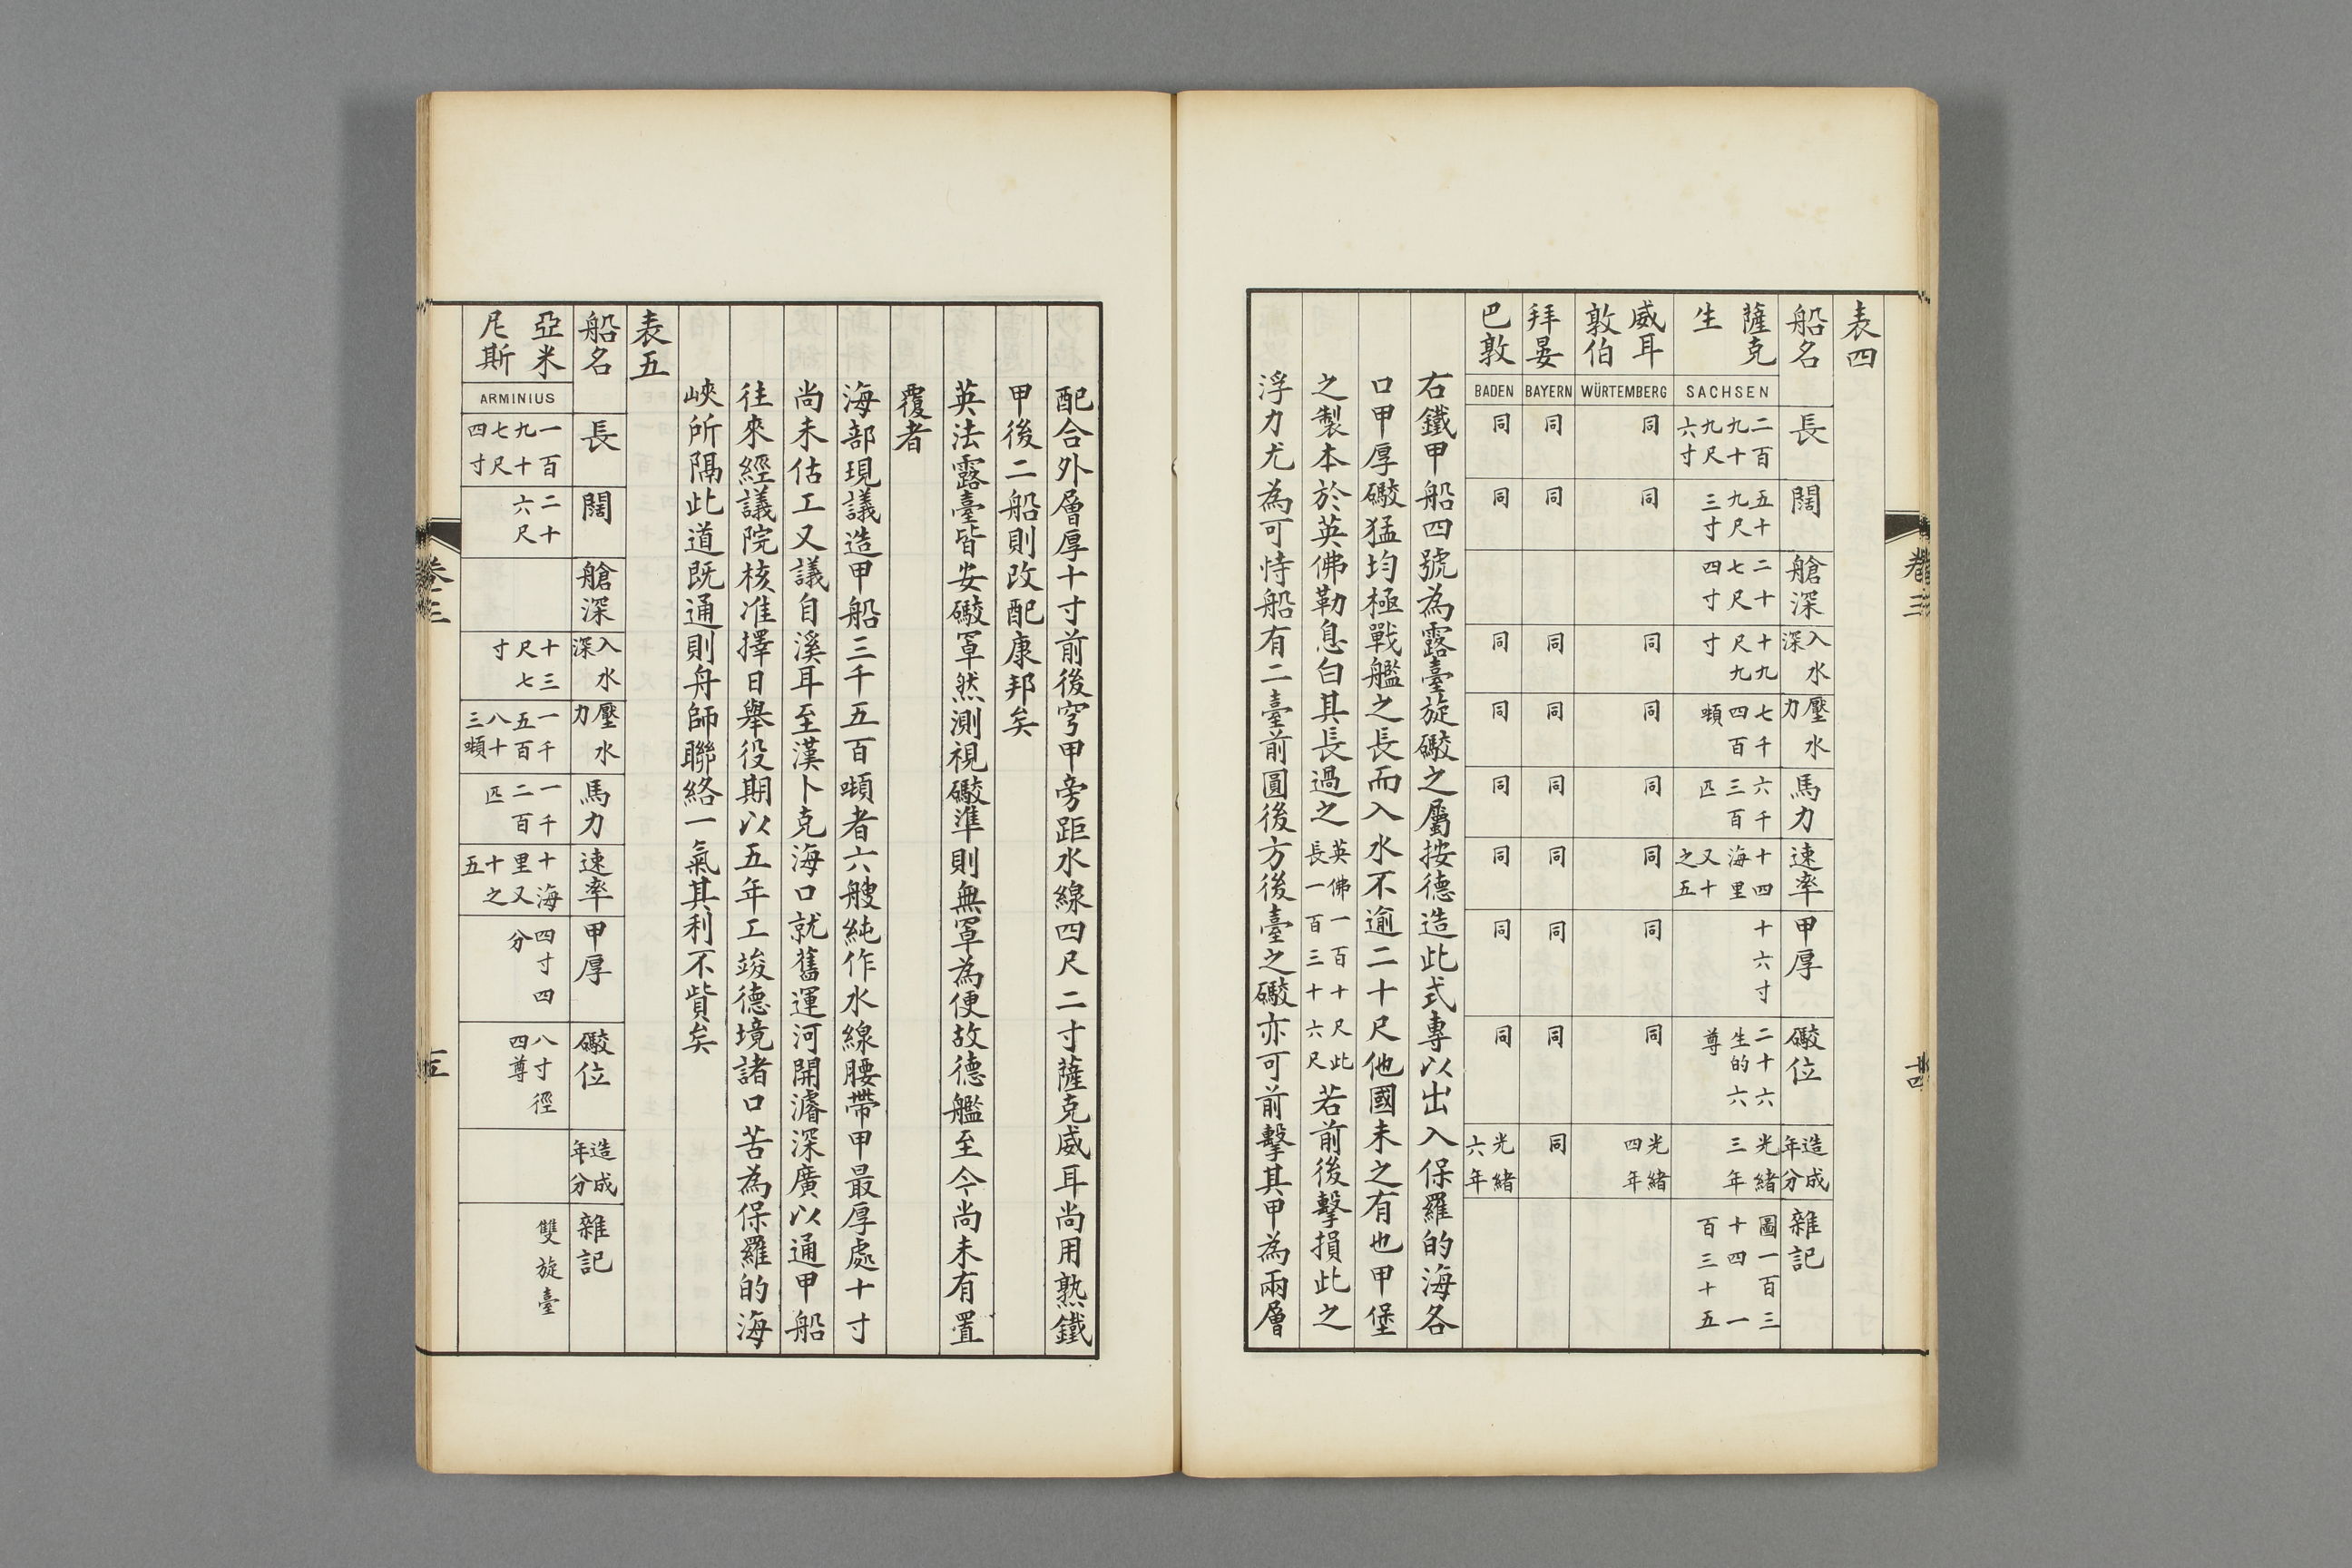 表四
船名
長
闊
艙深
入水深
壓水力
馬力
速率
甲厚
礮位
造成年分
雜記
薩克生
SACHSEN
二百九十九尺六寸
五十九尺三寸
二十七尺四寸
十九尺九寸
七千四百噸
六千三百匹
十四海里又十之五
十六寸
二十六生的六尊
光緒三年
圖一百三十四 一百三十五
威耳敦伯
WÜRTEMBERG
同
同
同
同
同
同
同
同
光緒四年
拜晏
BAYERN
同
同
同
同
同
同
同
同
同
巴敦
BADEN
同
同
同
同
同
同
同
同
光緒六年
右鐵甲船四號為露臺旋礮之屬按德造此式專以出入保羅的海各
口甲厚礮猛均極戰艦之長而入水不逾二十尺他國未之有也甲堡
之製本於英佛勒息白其長過之英佛一百十尺此長一百三十六尺若前後擊損此之
浮力尤為可恃船有二臺前圓後方後臺之礮亦可前擊其甲為兩層
卷三
十四
配合外層厚十寸前後穹甲旁距水線四尺二寸薩克威耳尚用熟鐵
甲後二船則改配康邦矣
英法露臺皆安礮罩然測視礮準則無罩為便故德艦至今尚未有置
覆者
海部現議造甲船三千五百噸者六艘純作水線腰帶甲最厚處十寸
尚未估工又議自溪耳至漢卜克海口就舊運河開濬深廣以通甲船
往來經議院核准擇日舉役期以五年工竣德境諸口苦為保羅的海
峽所隔此道既通則舟師聯絡一氣其利不貲矣
表五
船名
長
闊
艙深
入水深
壓水力
馬力
速率
甲厚
礮位
造成年分
雜記
亞米尼斯
ARMINIUS
一百九十七尺四寸
二十六尺
十三尺七寸
一千五百八十三噸
一千二百匹
十海里又十之五
四寸四分
八寸徑四尊
雙旋臺
卷三